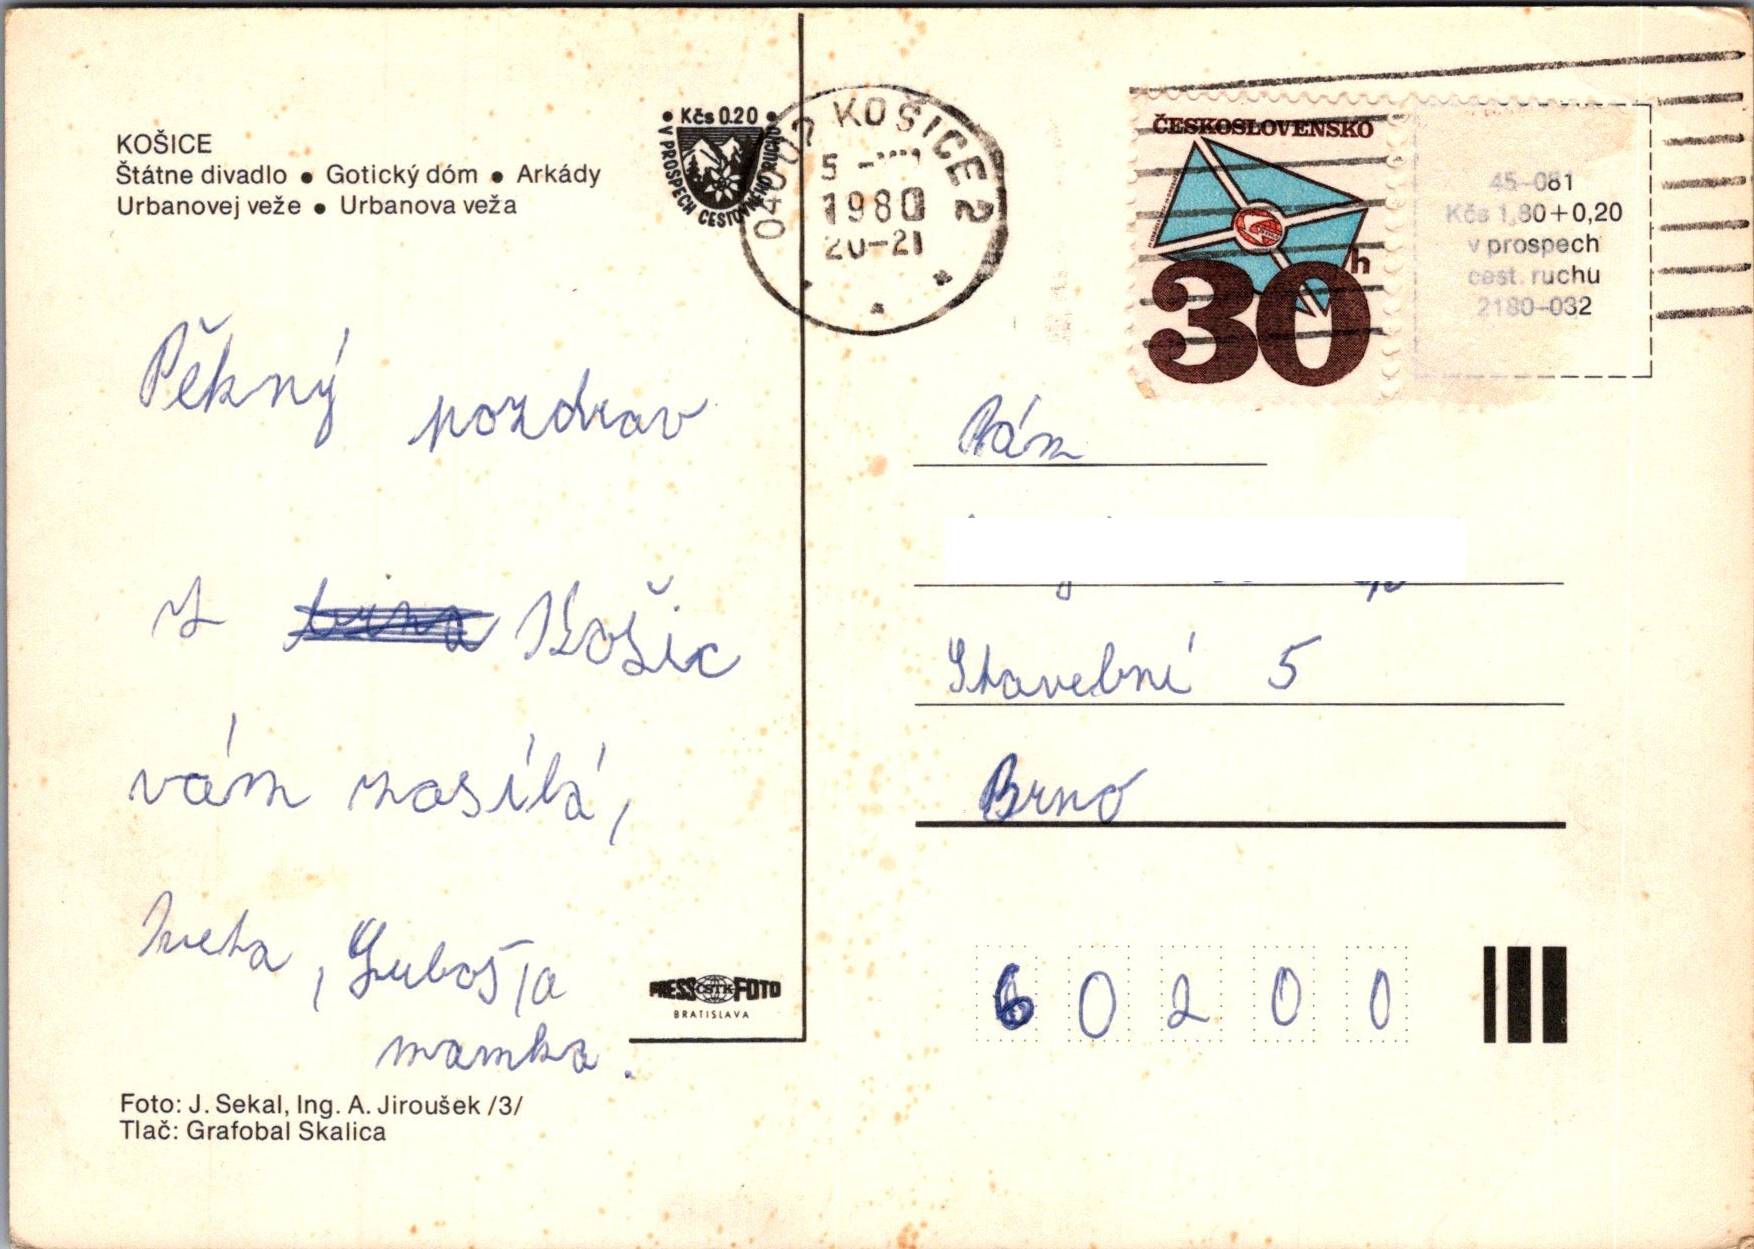 KOŠICE
Štátne divadlo • Gotický dóm • Arkády
Urbanovej veže • Urbanova veža
• Kčs 0.20 •
V PROSPECH CESTOVNÉHO RUCHU
040 02 KOŠICE 2
5
1980
20-21
ČESKOSLOVENSKO
30h
45-081
Kčs 1,80+0,20
v prospech
cest. ruchu
2180-032
Pěkný pozdrav
z Košic
vám zasílá,
Iveta, Luboš, a
mamka.
Stavební 5
Brno
60200
PRESS ČSTK FOTO
BRATISLAVA
Foto: J. Sekal, Ing. A. Jiroušek /3/
Tlač: Grafobal Skalica